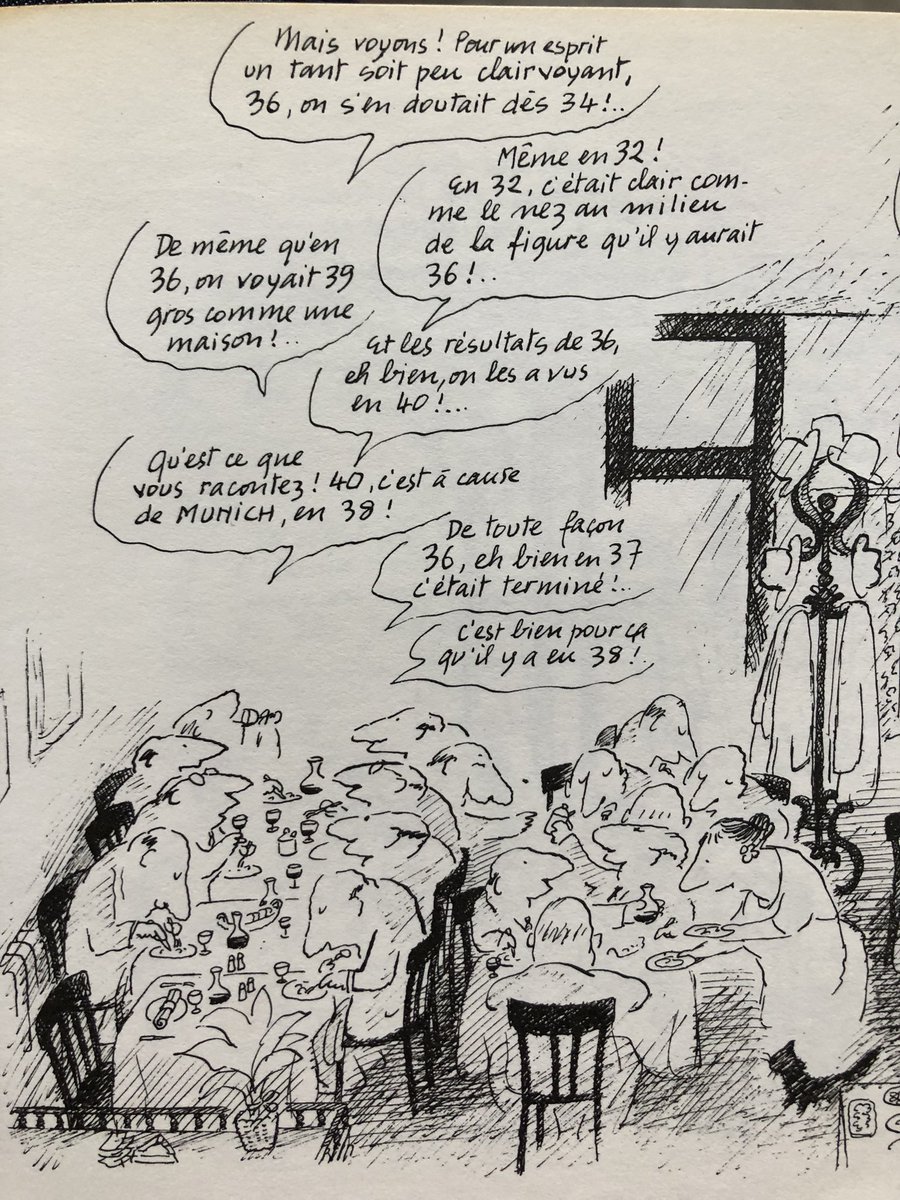 Mais voyons! Pour un esprit
un tant soit peu clairvoyant,
36, on s'en doutait dès 34!..
Même en 32!
En 32, c'était clair com-
me le nez au milieu
de la figure qu'il y aurait
36!..
De même qu'en
36, on voyait 39
gros comme une
maison!..
Et les résultats de 36,
eh bien, on les a vus
en 40!...
Qu'est ce que
vous racontez! 40, c'est à cause
de MUNICH, en 38!
De toute façon
36, eh bien en 37
c'était terminé!..
C'est bien pour ça
qu'il y a eu 38!